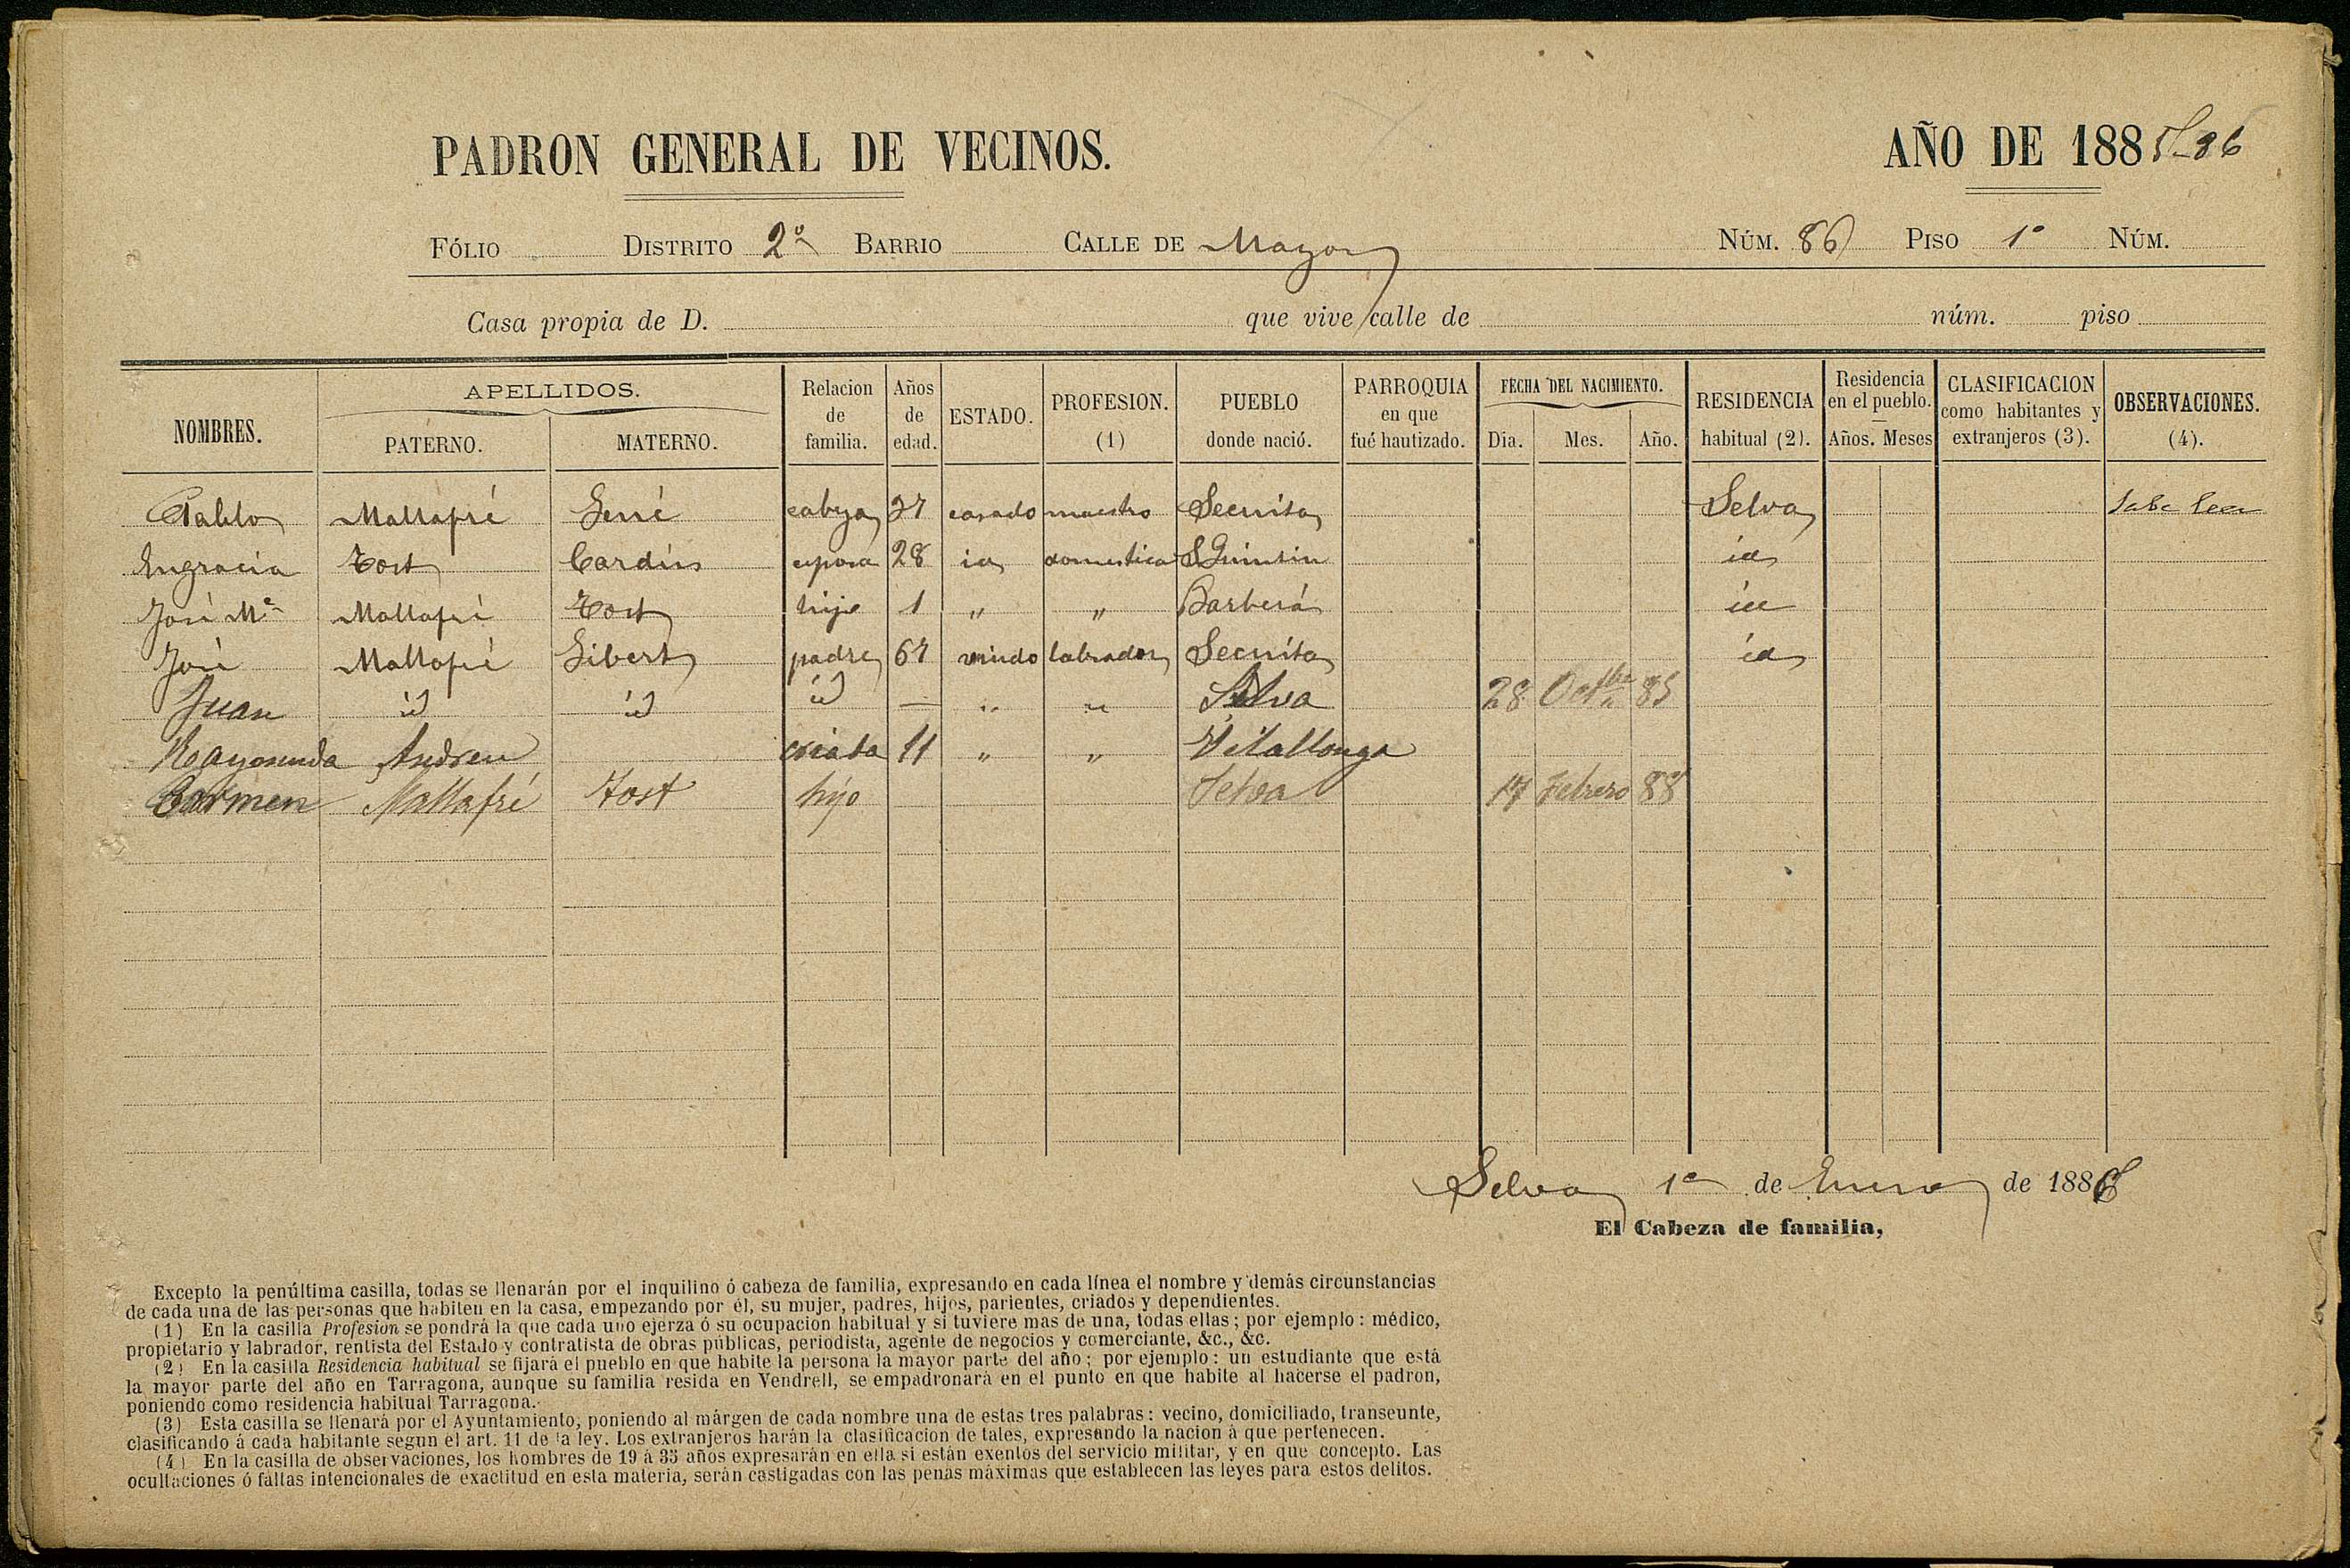 PADRON GENERAL DE VECINOS. AÑO DE 1885-86
FÓLIO DISTRITO 2º BARRIO CALLE DE Mayor NÚM. 86 PISO 1º NÚM.
Casa propia de D. que vive calle de núm. piso
NOMBRES. APELLIDOS. PATERNO. MATERNO. Relacion de familia. Años de edad. ESTADO. PROFESION. (1) PUEBLO donde nació. PARROQUIA en que fué bautizado. FECHA DEL NACIMIENTO. Dia. Mes. Año. RESIDENCIA habitual (2). Residencia en el pueblo. Años. Meses CLASIFICACION como habitantes y extranjeros (3). OBSERVACIONES. (4).
Pablo Mallafré Gené cabeza 37 casado maestro Secuita Selva Sabe leer
Engracia Tost Cardús esposa 28 id domestica S Quintin id
José Mª Mallafré Tost hijo 1 " " Barberá id
José Mallafré Gibert padre 67 viudo labrador Secuita id
Juan id id id — " " Selva 28 Octbre 85
Raymunda Andreu criada 11 " " Vilallonga
Carmen Mallafré Tost hijo Selva 17 Febrero 88
Selva 1º de Enero de 1886
El Cabeza de familia,
Excepto la penúltima casilla, todas se llenarán por el inquilino ó cabeza de familia, expresando en cada línea el nombre y demás circunstancias
de cada una de las personas que habiten en la casa, empezando por él, su mujer, padres, hijos, parientes, criados y dependientes.
(1) En la casilla Profesion se pondrá la que cada uno ejerza ó su ocupacion habitual y si tuviere mas de una, todas ellas; por ejemplo: médico,
propietario y labrador, rentista del Estado y contratista de obras públicas, periodista, agente de negocios y comerciante, &c., &c.
(2) En la casilla Residencia habitual se fijará el pueblo en que habite la persona la mayor parte del año; por ejemplo: un estudiante que está
la mayor parte del año en Tarragona, aunque su familia resida en Vendrell, se empadronará en el punto en que habite al hacerse el padron,
poniendo como residencia habitual Tarragona.
(3) Esta casilla se llenará por el Ayuntamiento, poniendo al márgen de cada nombre una de estas tres palabras: vecino, domiciliado, transeunte,
clasificando á cada habitante segun el art. 11 de la ley. Los extranjeros harán la clasificacion de tales, expresando la nacion á que pertenecen.
(4) En la casilla de observaciones, los hombres de 19 á 35 años expresarán en ella si están exentos del servicio militar, y en que concepto. Las
ocultaciones ó faltas intencionales de exactitud en esta materia, serán castigadas con las penas máximas que establecen las leyes para estos delitos.